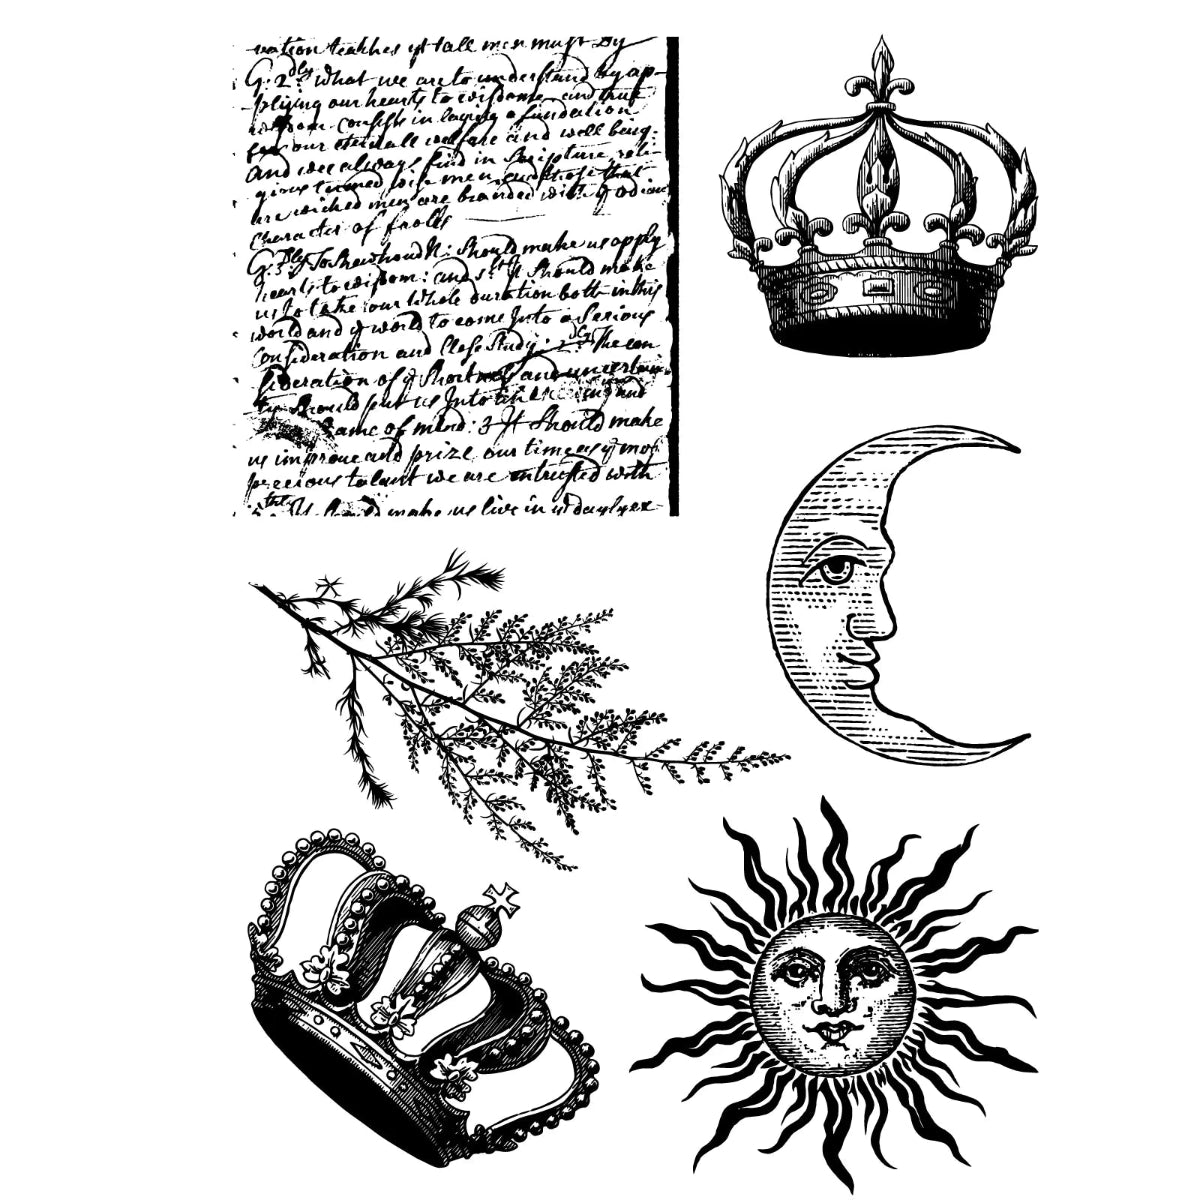 vation teaches yt all men must Dy
G: 2dly what we are to understand by ap-
plijing our hearts to wisdome and true
wisdom consists in laying a fundation
for our eternall welfare and well being:
And wee always find in Scripture reli-
gious termed wise men and those that
are wicked men are branded with ye odious
Character of foolls
G: 3dly To Shew how it: Should make us apply
hearts to wisdom: and 1st It Should make
us to take our Whole duration both in this
world and ye world to come Into a Serious
Consideration and Close Study: 2dly The con
sideration of ye Shortness and uncertain
ty Should put us Into
frame of mind: 3 It Should make
us improve and prize our time as ye most
precious talant we are intrusted with
Should make us live in